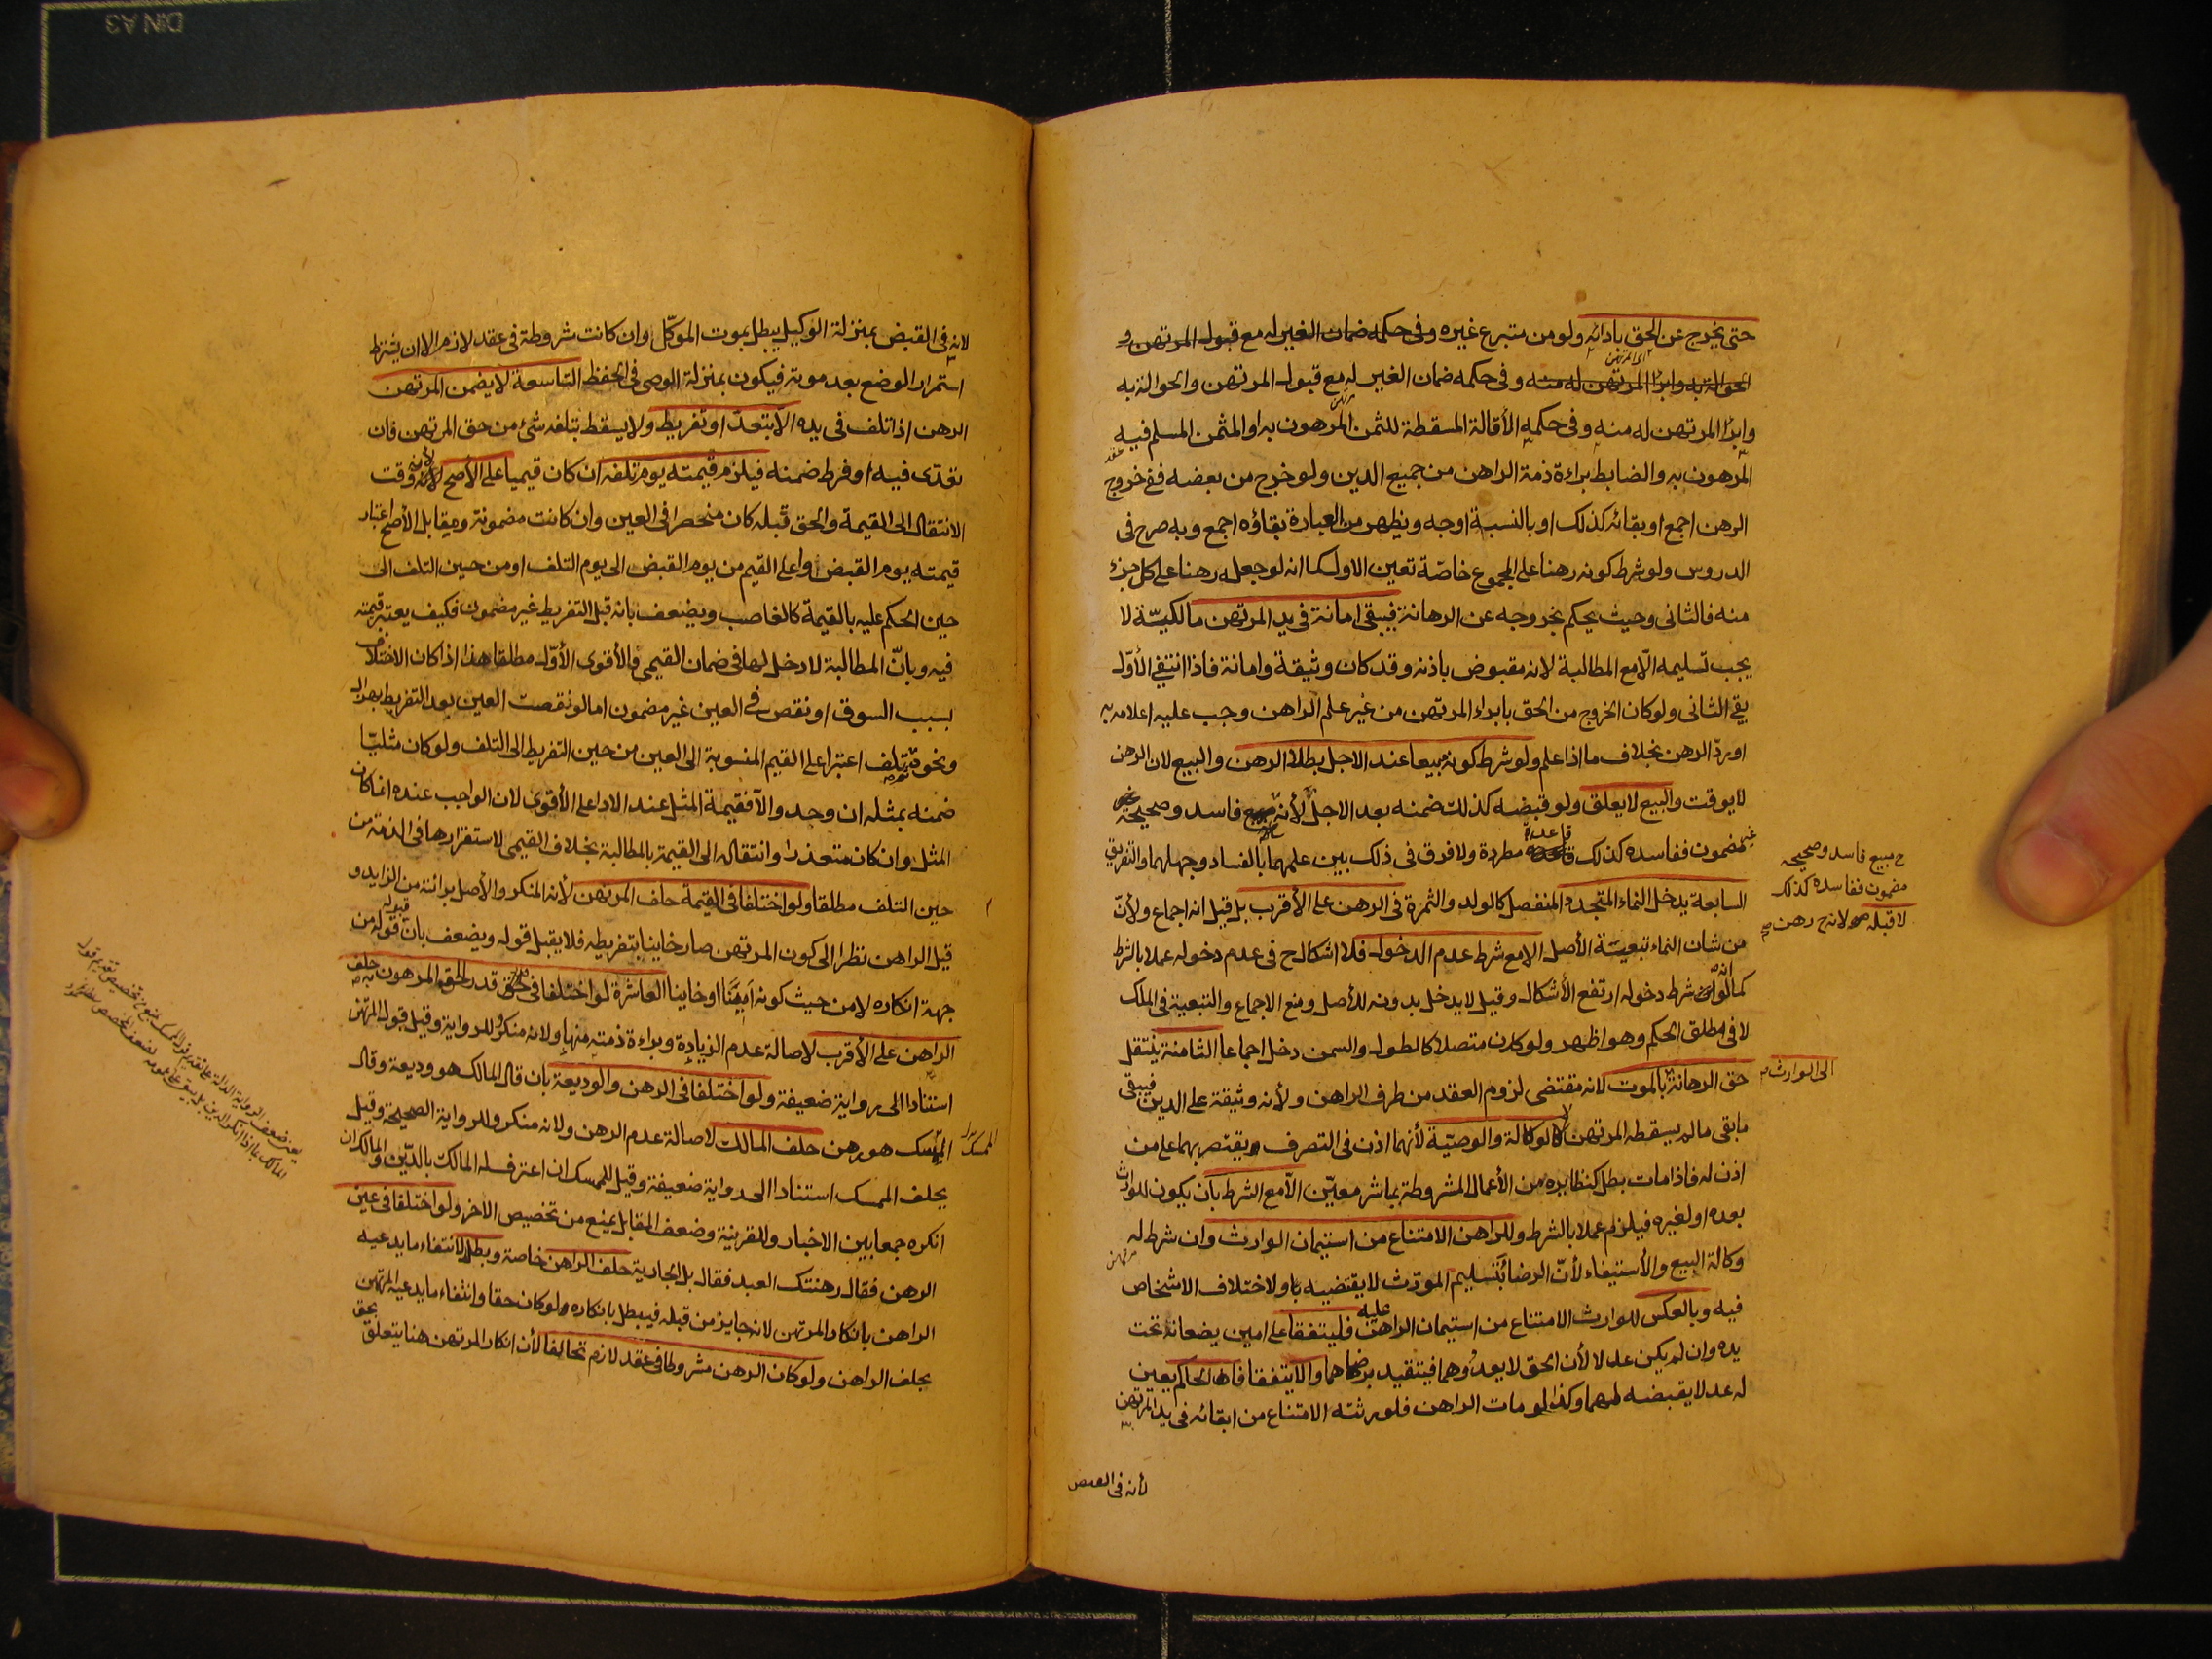 حتى يخرج عن الحق بادائه ولو من متبرع غيره وفى حكمه ضمان الغير له مع قبول المرتهن و
الحوالة به وابراء المرتهن له منه وفى حكمه ضمان الغير له مع قبول المرتهن والحوالة به
اى المرتهن
وابراء المرتهن له منه وفى حكمه الأقالة المسقطة للثمن المرهون به او المثمن المسلم فيه
المرهون به والضابط براءة ذمة الراهن من جميع الدين ولو خرج من بعضه ففى خروج
الرهن اجمع او بقائه كذلك او بالنسبة اوجه ويظهر من العبارة بقاؤه اجمع وبه صرح فى
الدروس ولو شرط كونه رهنا على المجموع خاصّة تعين الاول كما انه لو جعله رهنا على كل جزء
منه فالثانى وحيث يحكم بخروجه عن الرهانة فيبقى امانة فى يد المرتهن مالكيّة لا
يجب تسليمه الّا مع المطالبة لانه مقبوض باذنه وقد كان وثيقة وامانة فاذا انتفى الأوّل
بقى الثانى ولو كان الخروج من الحق بابراء المرتهن من غير علم الراهن وجب عليه اعلامه به
او ردّ الرهن بخلاف ما اذا علم ولو شرط كونه مبيعا عند الاجل بطلا الرهن والبيع لان الرهن
لا يوقت والبيع لا يعلق ولو قبضه كذلك ضمنه بعد الاجل لأنه فاسد وصحيحه
غير مضمون ففاسده كذلك قاعدة مطردة ولا فرق فى ذلك بين علمهما بالفساد وجهلهما والتفريق
ح مبيع فاسد وصحيحه
مضمون ففاسده كذلك
لا قبله لانه ح رهن صح
السابعة يدخل النماء المتجدد المنفصل كالولد والثمرة فى الرهن على الأقرب بل قيل انه اجماع ولأنّ
من شان النماء تبعيّة الأصل الا مع شرط عدم الدخول فلا اشكال ح فى عدم دخوله عملا بالشرط
كما انّه لو شرط دخوله ارتفع الأشكال وقيل لا يدخل بدونه للأصل ومنع الاجماع والتبعية فى الملك
لا فى مطلق الحكم وهو اظهر ولو كان متصلا كالطول والسمن دخل اجماعا الثامنة ينتقل
حق الرهانة بالموت لانه مقتضى لزوم العقد من طرف الراهن ولأنه وثيقة على الدين فيبقى
الى الوارث صح
ما بقى ما لم يسقطه المرتهن لا الوكالة والوصيّة لأنهما اذن فى التصرف يقتصر بهما على من
اذن له فاذا مات بطل كنظايره من الأعمال المشروطة بمباشر معيّن الّا مع الشرط بان يكون للوارث
بعده او لغيره فيلزم عملا بالشرط وللراهن الامتناع من استيمان الوارث وان شرط له
وكالة البيع والأستيفاء لأنّ الرضا بتسليم المورّث لا يقتضيه ولاختلاف الاشخاص
فيه وبالعكس للوارث الامتناع من استيمان الراهن عليه فليتفقا على امين يضعانه تحت
يده وان لم يكن عدلا لأن الحق لا يعدوهما فيتقيد برضاهما والا يتفقا فالحاكم يعين
له عدلا يقبضه لهما وكذا لو مات الراهن فلورثته الامتناع من ابقائه فى يد المرتهن
لأنه فى القبض
لانه فى القبض بمنزلة الوكيل يبطل بموت الموكّل وان كانت شروطة فى عقد لازم الا ان يشترط
استمرار الوضع بعد موته فيكون بمنزلة الوصى فى الحفظ التاسعة لا يضمن المرتهن
الرهن اذا تلف فى يده الا بتعدّ او تفريط ولا يسقط بتلفه شئ من حق المرتهن فان
تعدى فيه او فرط ضمنه فيلزم قيمته يوم تلفه ان كان قيميا على الأصح لأنه وقت
الانتقال الى القيمة والحق قبله كان منحصرا فى العين وان كانت مضمونة ومقابل الأصح اعتبار
قيمته يوم القبض او اعلى القيم من يوم القبض الى يوم التلف او من حين التلف الى
حين الحكم عليه بالقيمة كالغاصب ويضعف بانه قبل التفريط غير مضمون فكيف يعتبر قيمته
فيه وبانّ المطالبة لا دخل لها فى ضمان القيمى فالأقوى الأوّل مطلقا هذا اذا كان الاختلاف
بسبب السوق او نقص فى العين غير مضمون اما لو نقصت العين بعد التفريط بهزال
ونحوه ثم تلف اعتبر اعلى القيم المنسوبة الى العين من حين التفريط الى التلف ولو كان مثليّا
ضمنه بمثله ان وجد والا فقيمة المثل عند الاداء على الأقوى لان الواجب عنده انما كان
المثل وان كان متعذرا وانتقاله الى القيمة بالمطالبة بخلاف القيمى لاستقرارها فى الذمة من
حين التلف مطلقا ولو اختلفا فى القيمة حلف المرتهن لأنه المنكر والأصل برائته من الزايد و
قيل الراهن نظرا الى كون المرتهن صار خاينا بتفريطه فلا يقبل قوله ويضعف بان قبوله قوله من
جهة انكاره لا من حيث كونه امينا او خاينا العاشرة لو اختلفا فى قدر الحق المرهون به حلف
الراهن على الأقرب لاصالة عدم الزيادة وبراءة ذمته منها ولانه منكر وللرواية وقيل قول المرتهن
استنادا الى رواية ضعيفة ولو اختلفا فى الرهن والوديعة بان قال المالك هو وديعة وقال
الممسك هو رهن حلف المالك لاصالة عدم الرهن ولانه منكر وللرواية الصحيحة وقيل
الممسك
يحلف الممسك استنادا الى رواية ضعيفة وقيل للممسك ان اعترف له المالك بالدّين والمالك ان
انكره جمعا بين الاخبار وللقرينة وضعف المقابل يمنع من تخصيص الاخر ولو اختلفا فى عين
الرهن فقال رهنتك العبد فقال بل الجارية حلف الراهن خاصة وبطلا لانتفاء ما يدعيه
الراهن بانكار المرتهن لانه جايز من قبله فيبطل بانكاره لو كان حقا وانتفاء ما يدعيه المرتهن
بحلف الراهن ولو كان الرهن مشروطا فى عقد لازم تحالفا لأن انكار المرتهن هنا يتعلق بحق